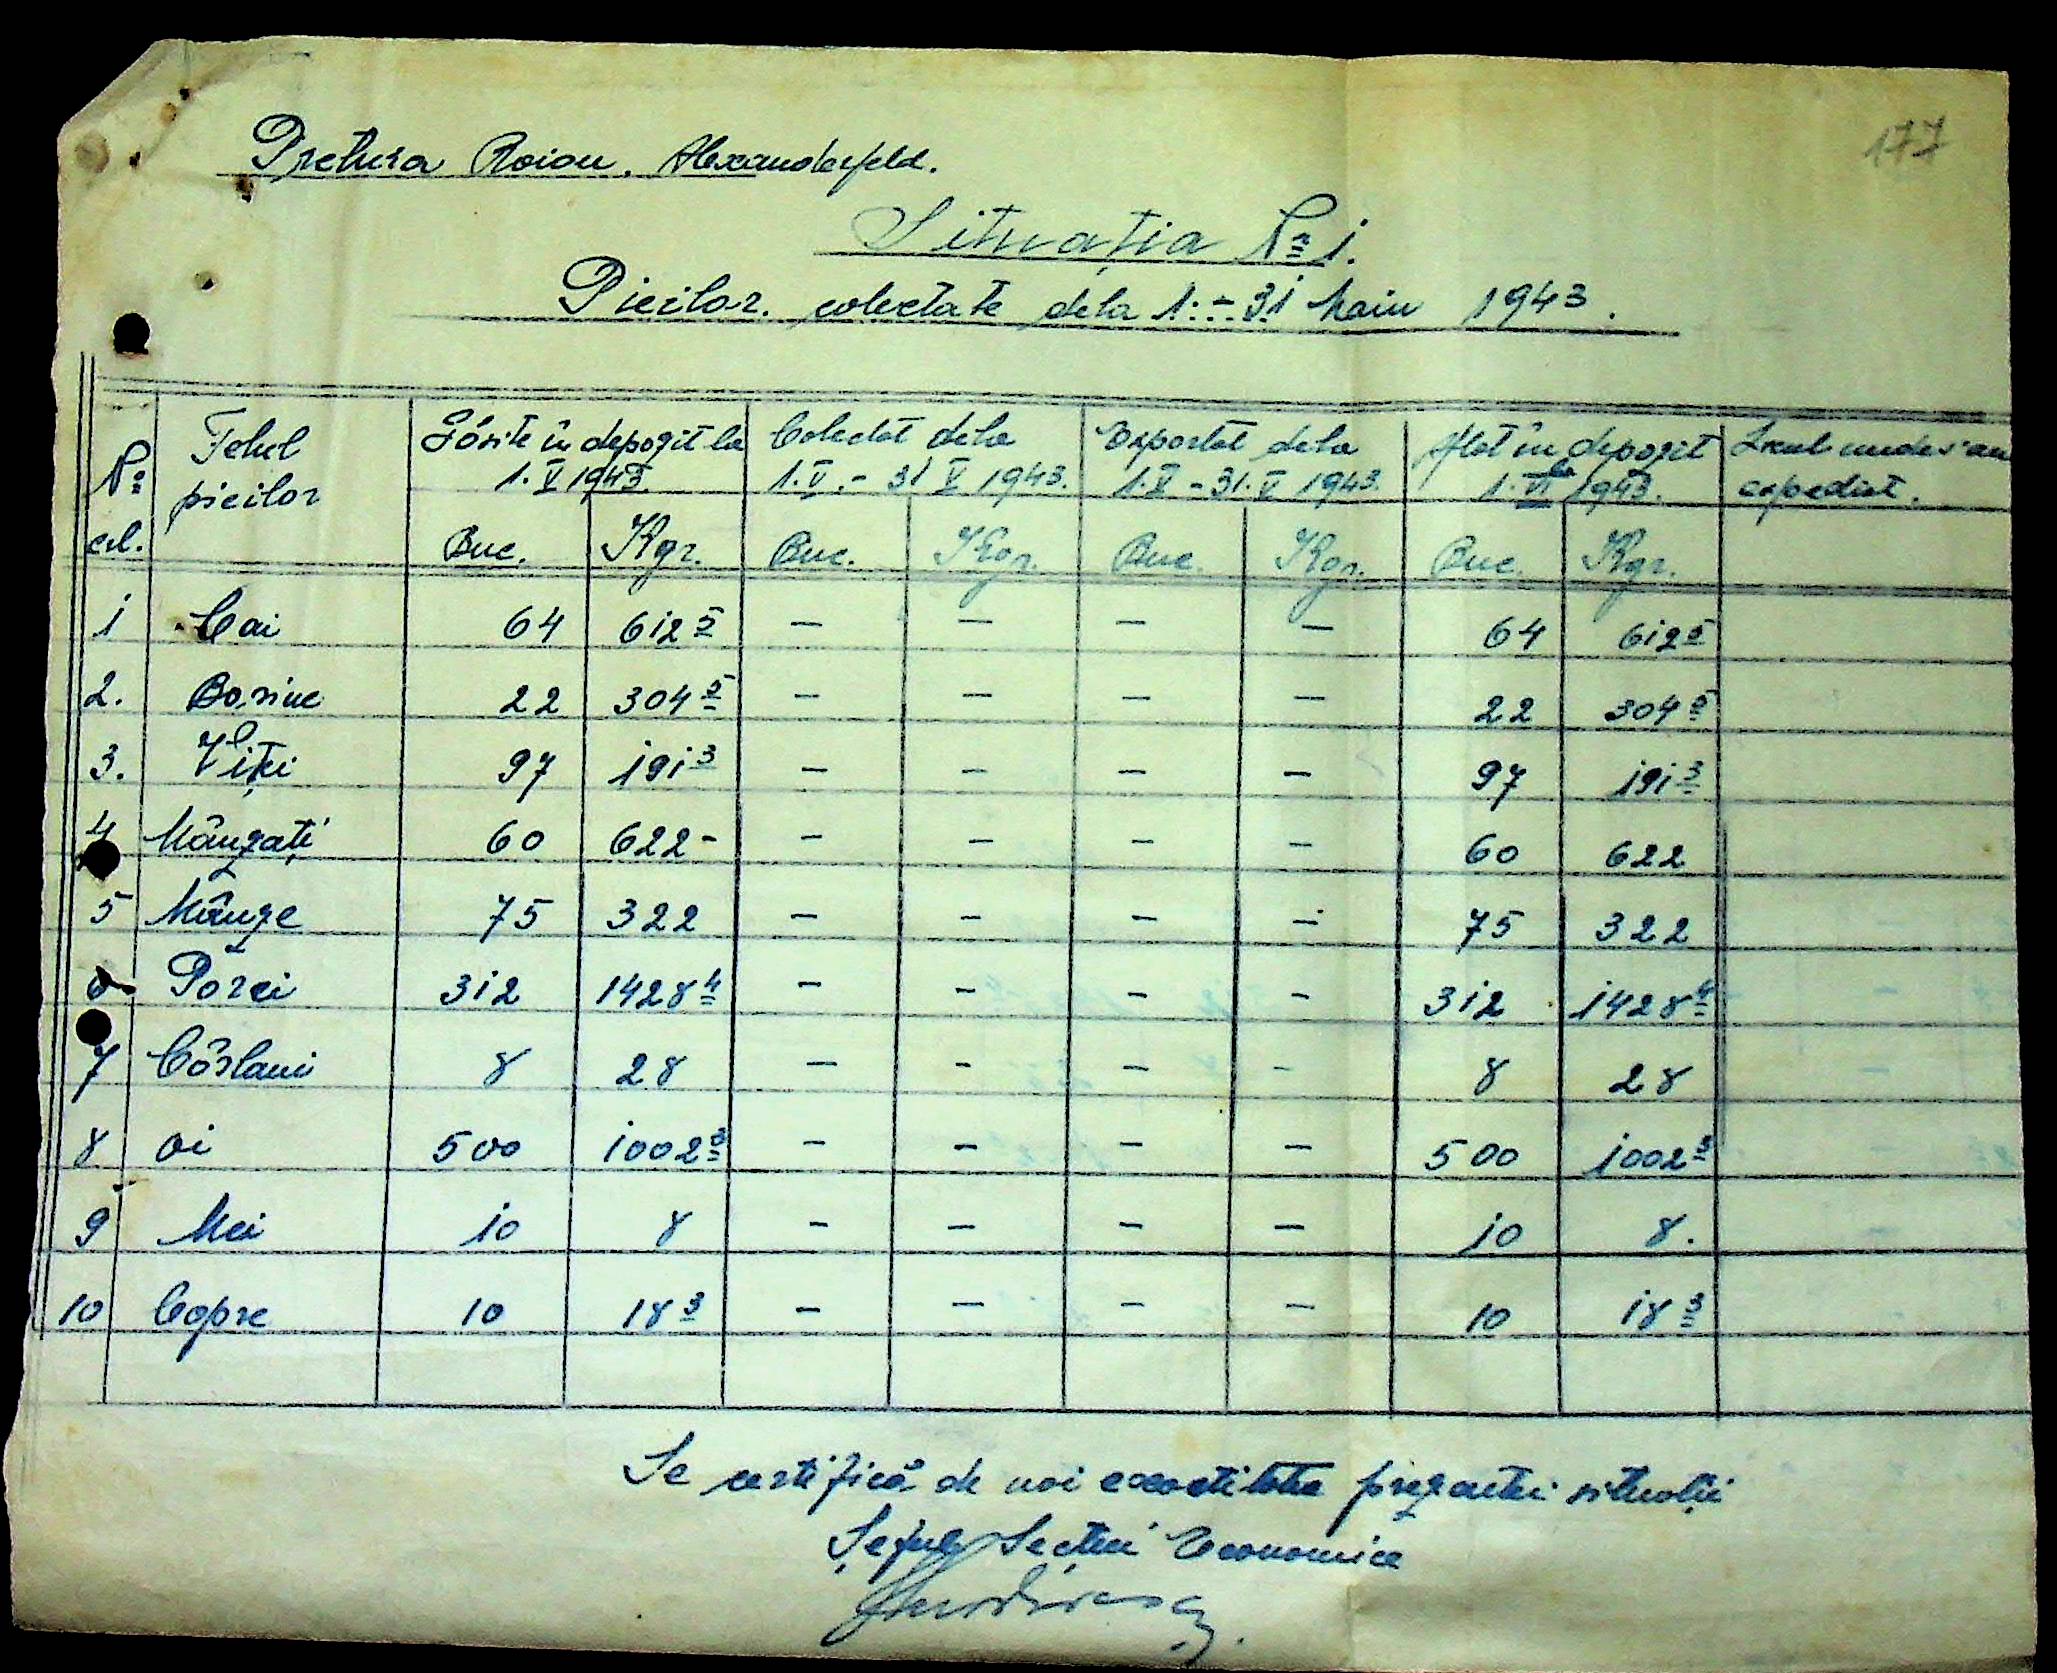 177
Pretura Raion. Alexanderfeld.
Situația Nr 1.
Pieilor. colectate dela 1. - 31 Maiu 1943.
Nr crt. Felul pieilor Găsite în depozit la 1. V 1943 Colectat dela 1. V. - 31 V 1943. Exportat dela 1. V - 31. V 1943. Aflat în depozit la 1. VI 1943. Locul unde s'au expediat.
Buc. Kgr. Buc. Kgr. Buc. Kgr. Buc. Kgr.
1 Cai 64 612 5 — — — — 64 612 5
2. Bovine 22 304 5 — — — — 22 304 5
3. Viței 97 191 3 — — — — 97 191 3
4 Mânzați 60 622 - — — — — 60 622
5 Mânze 75 322 — — — — 75 322
6 Porci 312 1428 4 — — — — 312 1428 4
7 Cârlani 8 28 — — — — 8 28
8 Oi 500 1002 3 — — — — 500 1002 3
9 Miei 10 8 — — — — 10 8.
10 Capre 10 18 3 — — — — 10 18 3
Se certifică de noi exactitatea prezentei situații
Șeful Secției Economice